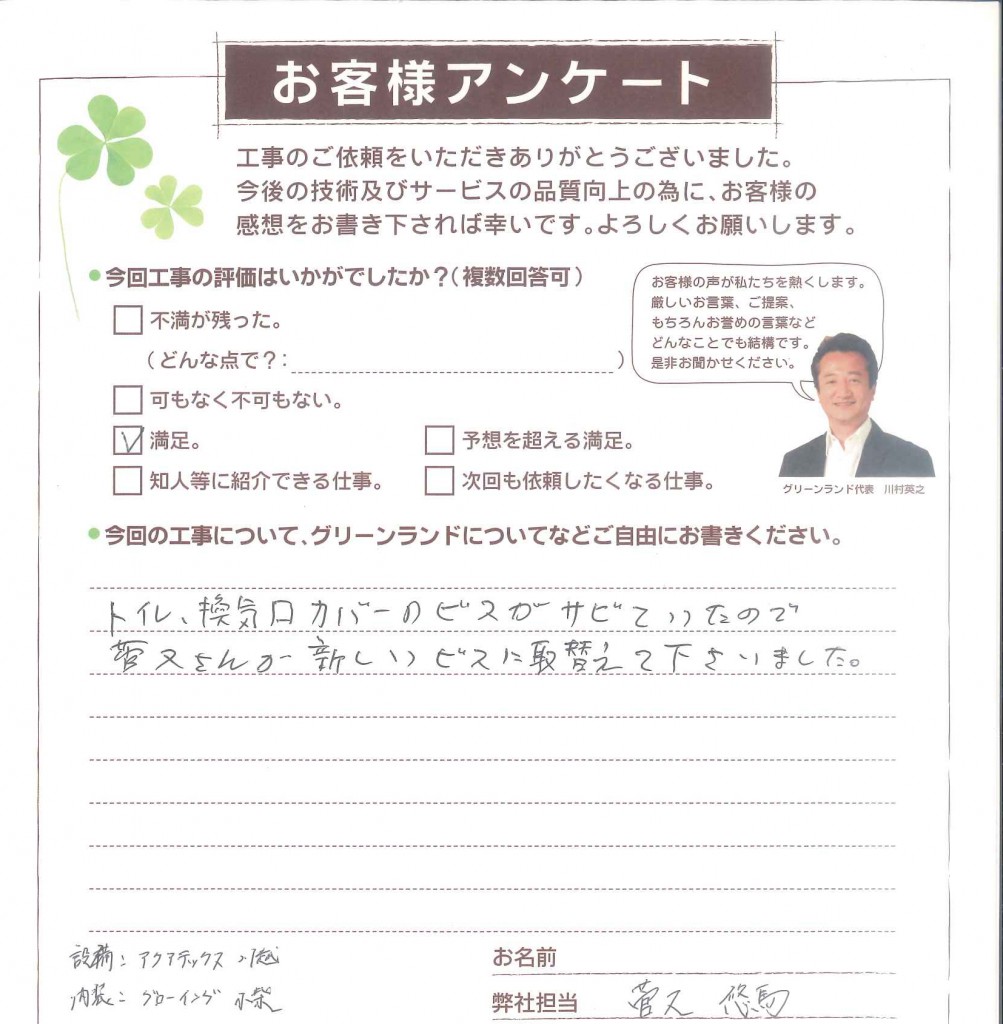 お客様アンケート
工事のご依頼をいただきありがとうございました。
今後の技術及びサービスの品質向上の為に、お客様の
感想をお書き下されば幸いです。よろしくお願いします。
●今回工事の評価はいかがでしたか？（複数回答可）
不満が残った。
（どんな点で？： ）
可もなく不可もない。
満足。
予想を超える満足。
知人等に紹介できる仕事。
次回も依頼したくなる仕事。
お客様の声が私たちを熱くします。
厳しいお言葉、ご提案、
もちろんお誉めの言葉など
どんなことでも結構です。
是非お聞かせください。
グリーンランド代表 川村英之
●今回の工事について、グリーンランドについてなどご自由にお書きください。
トイレ、換気口カバーのビスがサビていたので
菅又さんが新しいビスに取替えて下さいました。
設備：アクアテックス
内装：グローイング
お名前
弊社担当 菅又 悠馬